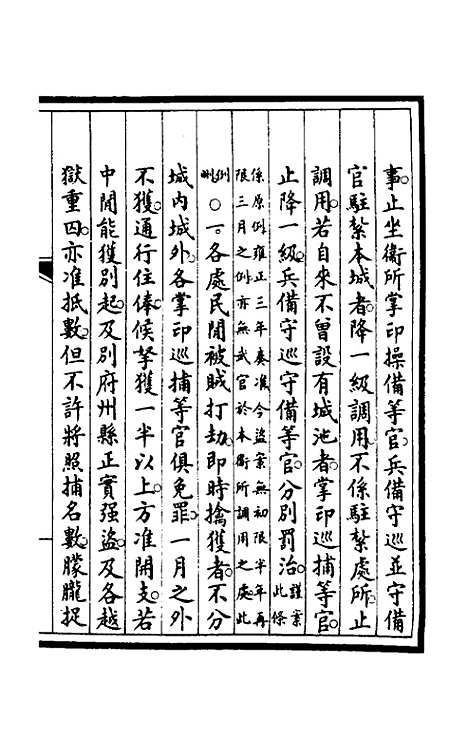 事止坐衛所掌印操備等官兵備守巡並守備
官駐紮本城者降一級調用不係駐紮處所止
調用若自來不曾設有城池者掌印巡捕等官
止降一級兵備守巡守備等官分別罰治謹案此條
係原例雍正三年奏准今盜案無初限半年再
限三月之例亦無武官於本衛所調用之處此
例刪○一各處民閒被賊打劫即時擒獲者不分
城內城外各掌印巡捕等官俱免罪一月之外
不獲通行住俸候拏獲一半以上方准開支若
中閒能獲別起及別府州縣正實强盜及各越
獄重囚亦准抵數但不許將照捕名數朦朧捉